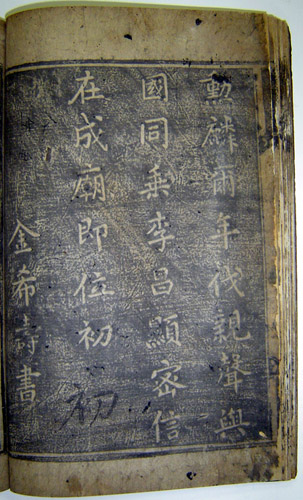 勳麟兩年代親聲與
國同乘李昌顯密信
在成廟即位初
金希壽書
初